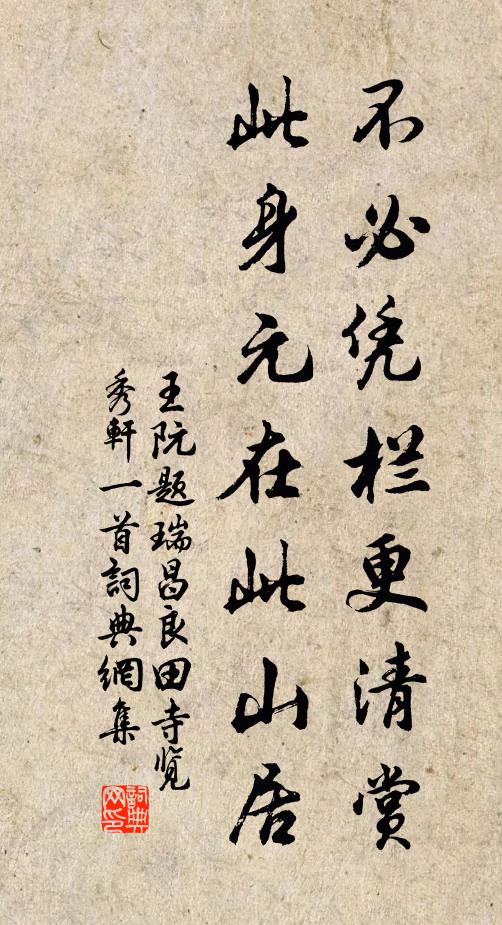 不必凭栏更清赏
此身元在此山居
王阮题瑞昌良田寺览
秀軒一首詞典網集
詞典网印